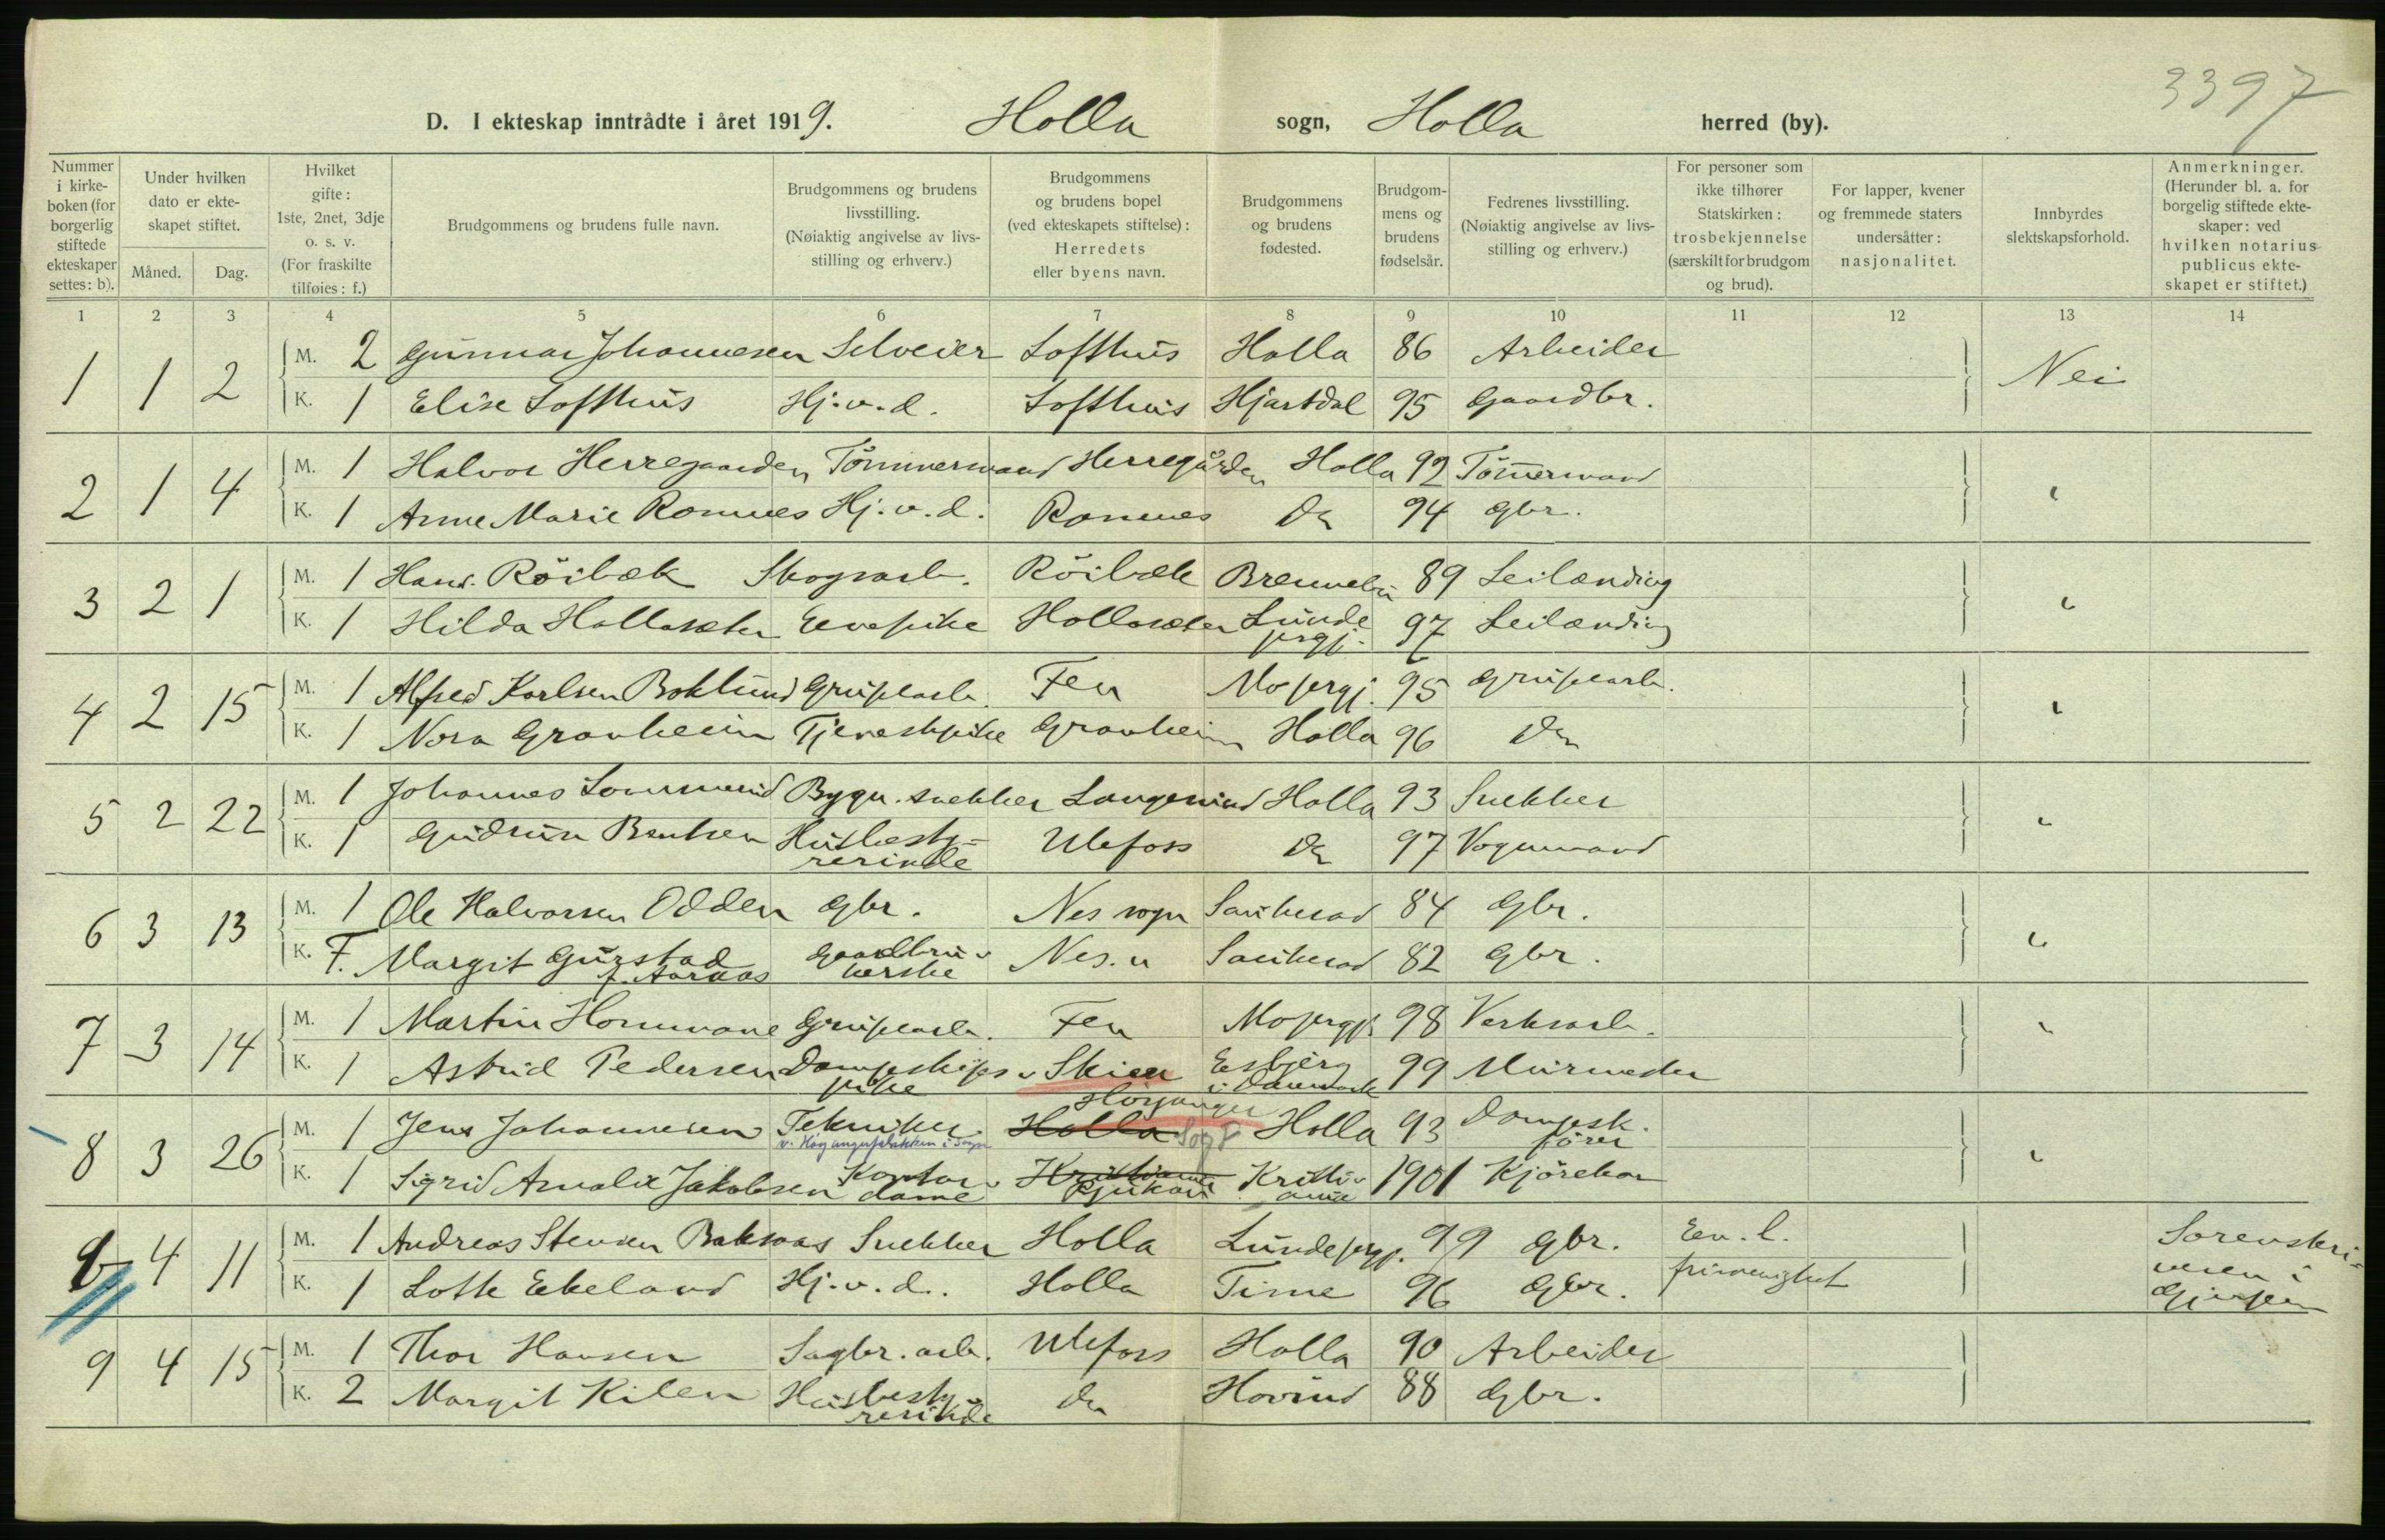 3397
D. I ekteskap inntrådte i året 1919. Holla sogn, Holla herred (by).
Nummer i kirkeboken (for borgerlig stiftede ekteskaper settes: b).
Under hvilken dato er ekteskapet stiftet.
Måned. Dag.
Hvilket gifte: 1ste, 2net, 3dje o. s. v. (For fraskilte tilføies: f.)
Brudgommens og brudens fulle navn.
Brudgommens og brudens livsstilling. (Nøiaktig angivelse av livsstilling og erhverv.)
Brudgommens og brudens bopel (ved ekteskapets stiftelse): Herredets eller byens navn.
Brudgommens og brudens fødested.
Brudgommens og brudens fødselsår.
Fedrenes livsstilling. (Nøiaktig angivelse av livsstilling og erhverv.)
For personer som ikke tilhører Statskirken: trosbekjennelse (særskilt for brudgom og brud).
For lapper, kvener og fremmede staters undersåtter: nasjonalitet.
Innbyrdes slektskapsforhold.
Anmerkninger. (Herunder bl. a. for borgelig stiftede ekteskaper: ved hvilken notarius publicus ekteskapet er stiftet.)
1 2 3 4 5 6 7 8 9 10 11 12 13 14
1 1 2 M. 2 Gunnar Johannesen Selveier Lofthus Holla 86 Arbeider Nei
K. 1 Elise Lofthus Hj.v.d. Lofthus Hjartdal 95 Gaardbr.
2 1 4 M. 1 Halvor Herregaarden Tömmermand Herregården Holla 92 Tömmermand "
K. 1 Anne Marie Romnes Hj.v.d. Romnes Do 94 Gbr.
3 2 1 M. 1 Hans Röibæk Skogsarb. Röibæk 89 Leilænding "
K. 1 Hilda Hollasæter Hollasæter Lunde prgj. 97 Leilænding
4 2 15 M. 1 Alfred Karlsen Boklund Grubearb. Fen Mo prgj. 95 Grubearb. "
K. 1 Nora Granheim Tjenestpike Granheim Holla 96 Do
5 2 22 M. 1 Johannes Bygn. snekker Holla 93 Snekker "
K. 1 Gudrun Bentsen Husbesty-
rerinde Ulefoss Do 97 Vognmand
6 3 13 M. 1 Ole Halvorsen Odden Gbr. Nes sogn Sauherad 84 Gbr. "
K. F. Margit Gurstad
f. Aarnas Gaardbru-
kerske Nes. " Sauherad 82 Gbr.
7 3 14 M. 1 Martin Hommane Grubearb. Fen Mo prgj. 98 Verksarb. "
K. 1 Astrid Pedersen Dampskips-
pike Skien Esbjerg
i Danmark 99 Murmester
8 3 26 M. 1 Jens Johannesen Tekniker Høyanger
Holla Sogn Holla 93 Dampsk.
förer "
K. 1 Sigrid Amalie Jakobsen Kontor-
dame Kristiania
Rjukan Kristi-
ania 1901 Kjörekar
b 4 11 M. 1 Andreas Stensen Baksaas Snekker Holla Lunde prgj. 99 Gbr. Ev. l.
frimenighet Sorenskri-
veren i
Gjerpen
K. 1 Lotte Ekeland Hj.v.d. Holla Time 96 Gbr.
9 4 15 M. 1 Thor Hansen Sagbr. arb. Ulefoss Holla 90 Arbeider
K. 2 Margit Kilen Husbesty-
rerinde Do Hovind 88 Gbr.